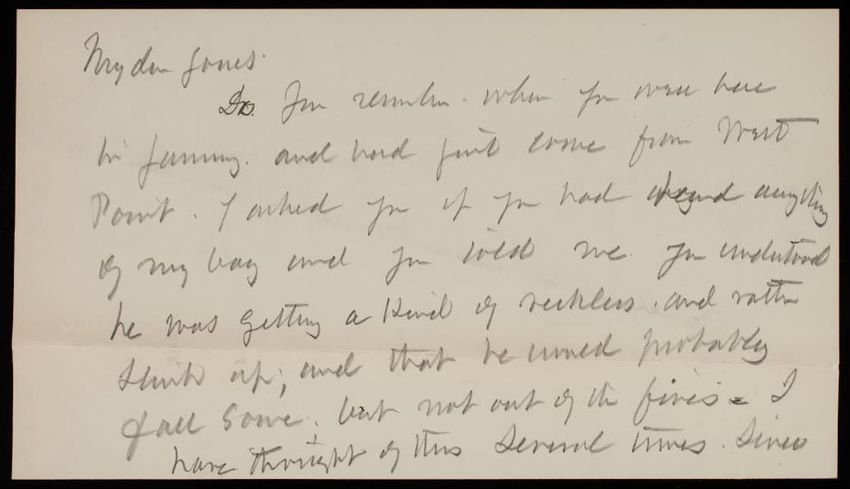 My dear Jones.
Do you remember when you were here
in January. and had just come from West
Point. I asked you if you had heard anything
of my boy and you told me you understood
he was getting a kind of reckless. and rather
stuck up; and that he would probably
fall some, but not out of the fives = I
have thought of this several times. Since